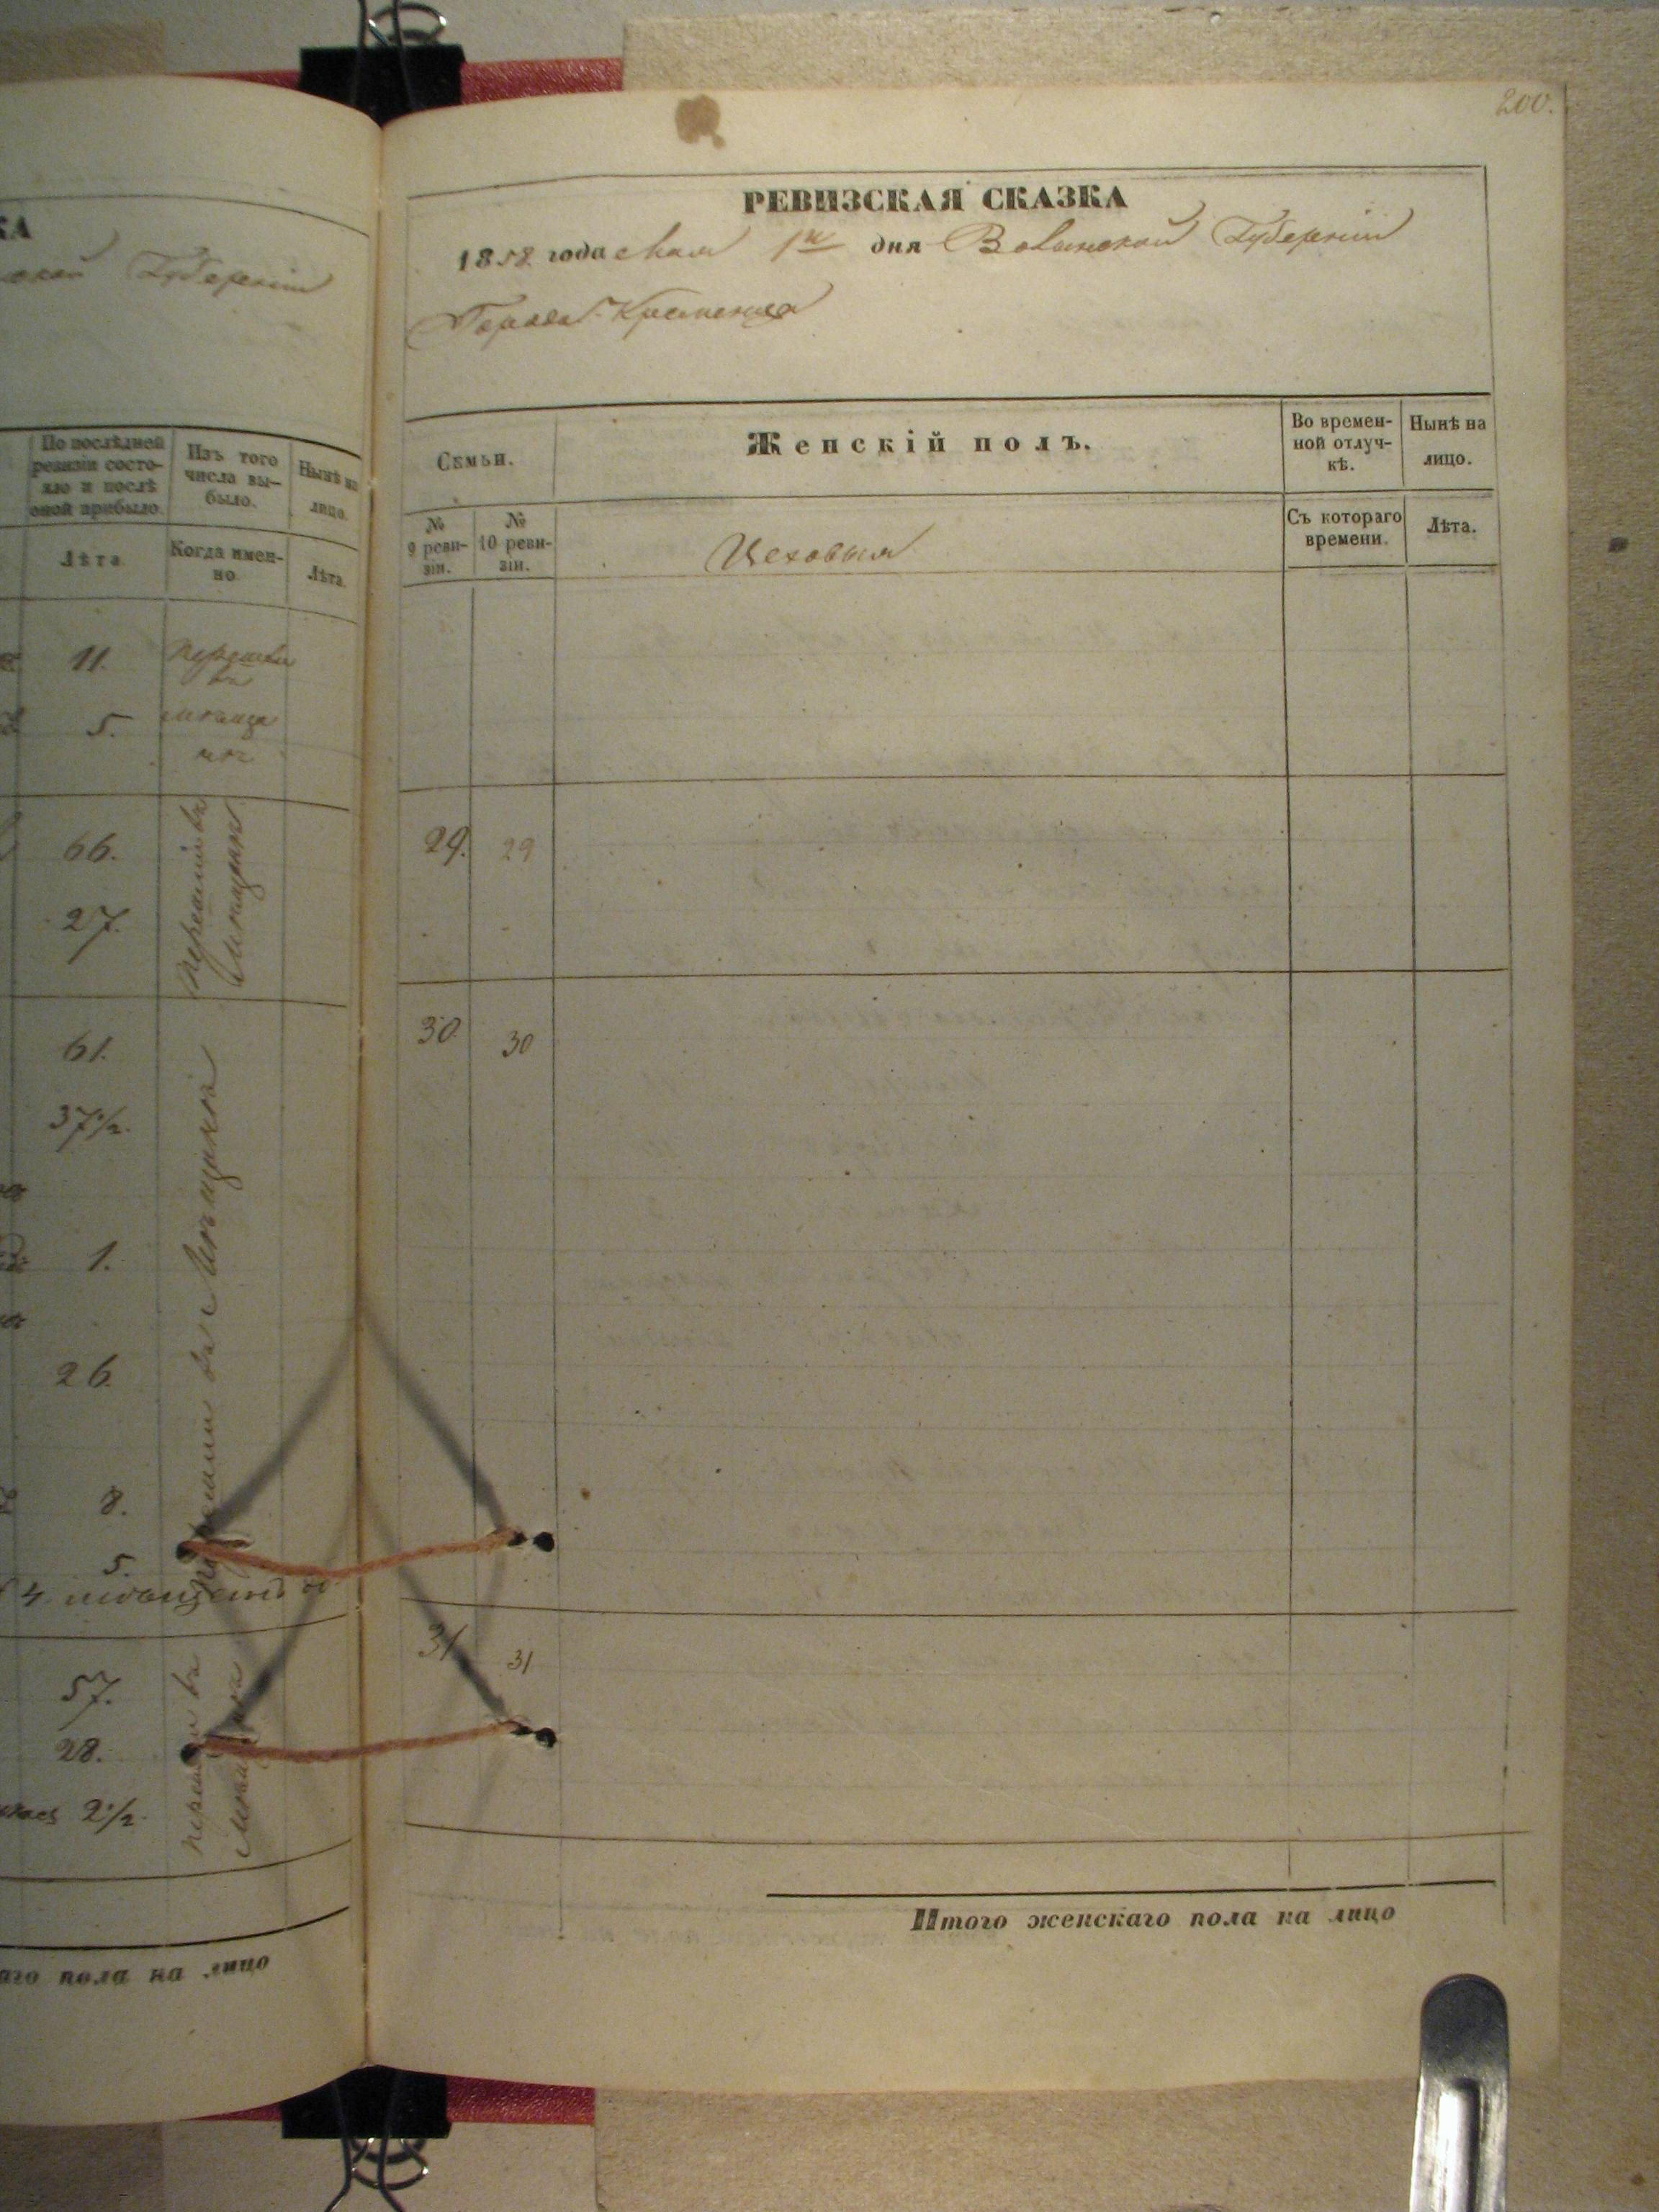 КА
Губернiи
По послѣдней
ревизiи состо-
яло и послѣ
оной прибыло.
Изъ того
числа вы-
было.
Нынѣ на
лицо.
Лѣта
Когда имен-
но
Лѣта.
11.
перешли
въ
5.
мѣща
не
66.
27.
перешли въ
мѣщане
61.
37½.
1.
26.
8.
5.
перешли въ мѣщане
57.
28.
2½.
перешли въ
мѣщане
пола на лицо
200.
РЕВИЗСКАЯ СКАЗКА
1858 года Мая 1го дня Волынской Губернiи
Города Кременца
Семьи.
Женскiй полъ.
Во времен-
ной отлуч-
кѣ.
Нынѣ на
лицо.
№
9 реви-
зiи.
№
10 реви-
зiи.
Цеховыя
Съ котораго
времени.
Лѣта.
29. 29
30 30
31 31
Итого женскаго пола на лицо